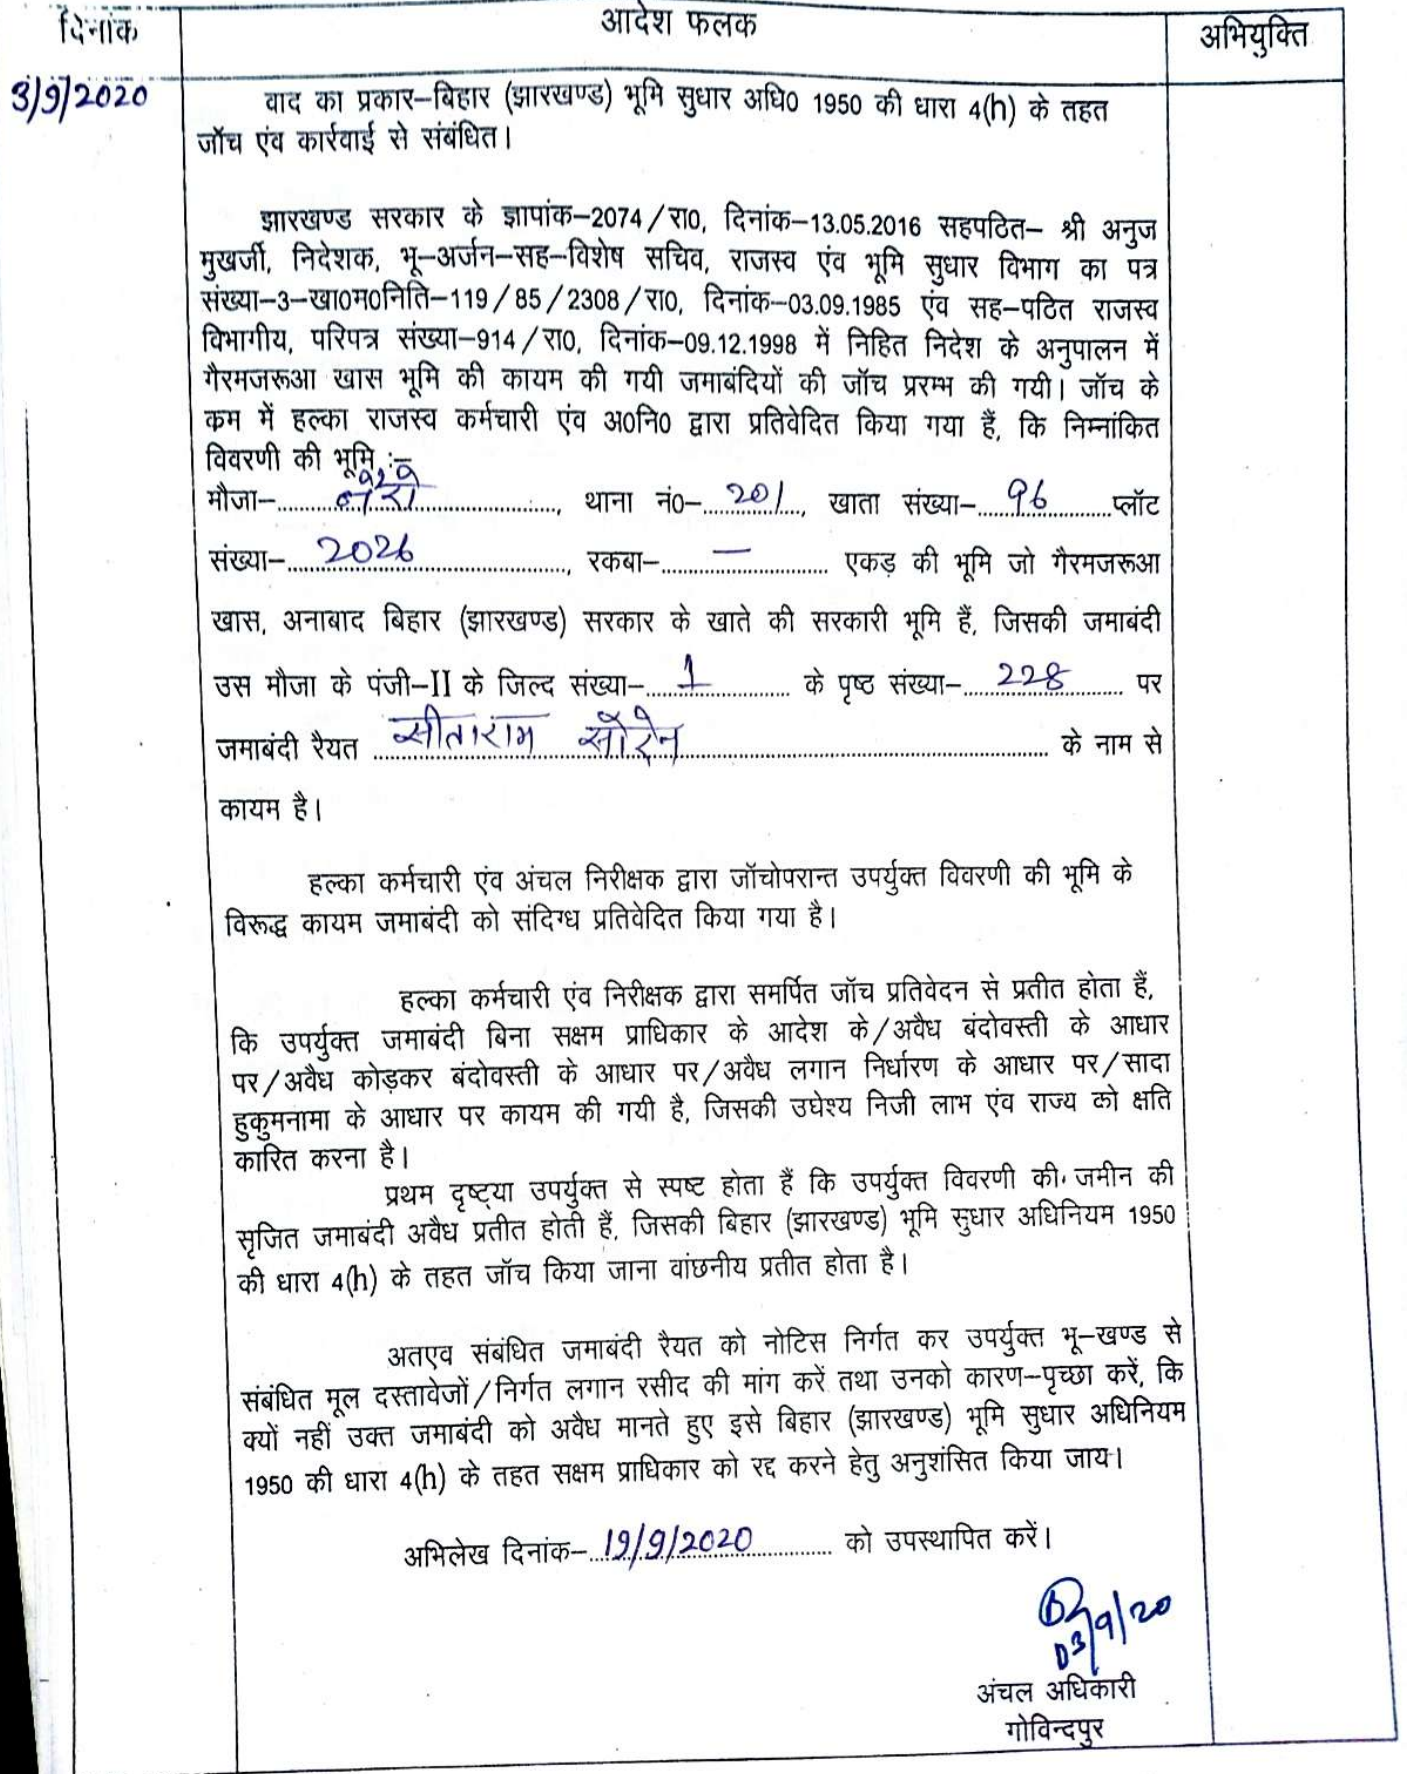 दिनांक
आदेश फलक
अभियुक्ति
3/9/2020
वाद का प्रकार–बिहार (झारखण्ड) भूमि सुधार अधि0 1950 की धारा 4(h) के तहत
जॉच एंव कार्रवाई से संबंधित।
झारखण्ड सरकार के ज्ञापांक–2074/रा0, दिनांक–13.05.2016 सहपठित– श्री अनुज
मुखर्जी, निदेशक, भू–अर्जन–सह–विशेष सचिव, राजस्व एंव भूमि सुधार विभाग का पत्र
संख्या–3–खा0म0निति–119/85/2308/रा0, दिनांक–03.09.1985 एंव सह–पठित राजस्व
विभागीय, परिपत्र संख्या–914/रा0, दिनांक–09.12.1998 में निहित निदेश के अनुपालन में
गैरमजरूआ खास भूमि की कायम की गयी जमाबंदियों की जॉच प्ररम्भ की गयी। जॉच के
कम में हल्का राजस्व कर्मचारी एंव अ0नि0 द्वारा प्रतिवेदित किया गया हैं, कि निम्नांकित
विवरणी की भूमि :–
मौजा–...................., थाना नं0–..201.., खाता संख्या–..96..प्लॉट
संख्या–..2026...................., रकबा–.....—..... एकड़ की भूमि जो गैरमजरूआ
खास, अनाबाद बिहार (झारखण्ड) सरकार के खाते की सरकारी भूमि हैं, जिसकी जमाबंदी
उस मौजा के पंजी–II के जिल्द संख्या–....1.......... के पृष्ठ संख्या–....228...... पर
जमाबंदी रैयत ..सीताराम सोरेन.............................. के नाम से
कायम है।
हल्का कर्मचारी एंव अंचल निरीक्षक द्वारा जॉचोपरान्त उपर्युक्त विवरणी की भूमि के
विरूद्ध कायम जमाबंदी को संदिग्ध प्रतिवेदित किया गया है।
हल्का कर्मचारी एंव निरीक्षक द्वारा समर्पित जॉच प्रतिवेदन से प्रतीत होता हैं,
कि उपर्युक्त जमाबंदी बिना सक्षम प्राधिकार के आदेश के/अवैध बंदोवस्ती के आधार
पर/अवैध कोड़कर बंदोवस्ती के आधार पर/अवैध लगान निर्धारण के आधार पर/सादा
हुकुमनामा के आधार पर कायम की गयी है, जिसकी उघेश्य निजी लाभ एंव राज्य को क्षति
कारित करना है।
प्रथम दृष्ट्या उपर्युक्त से स्पष्ट होता हैं कि उपर्युक्त विवरणी की जमीन की
सृजित जमाबंदी अवैध प्रतीत होती हैं, जिसकी बिहार (झारखण्ड) भूमि सुधार अधिनियम 1950
की धारा 4(h) के तहत जॉच किया जाना वांछनीय प्रतीत होता है।
अतएव संबंधित जमाबंदी रैयत को नोटिस निर्गत कर उपर्युक्त भू–खण्ड से
संबंधित मूल दस्तावेजों/निर्गत लगान रसीद की मांग करें तथा उनको कारण–पृच्छा करें, कि
क्यों नहीं उक्त जमाबंदी को अवैध मानते हुए इसे बिहार (झारखण्ड) भूमि सुधार अधिनियम
1950 की धारा 4(h) के तहत सक्षम प्राधिकार को रद्द करने हेतु अनुशंसित किया जाय।
अभिलेख दिनांक–..19/9/2020.......... को उपस्थापित करें।
03/9/20
अंचल अधिकारी
गोविन्दपुर